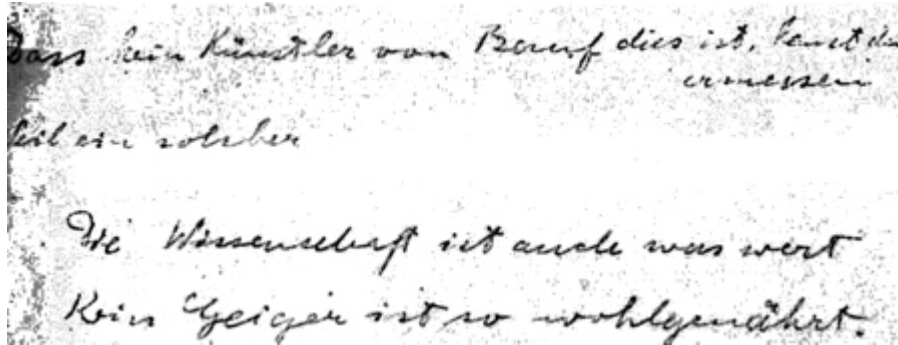 Dass kein Künstler von Beruf dies ist, kannst du
ermessen
Weil ein solcher
Die Wissenschaft ist auch was wert
Kein Geiger ist so wohlgenährt.